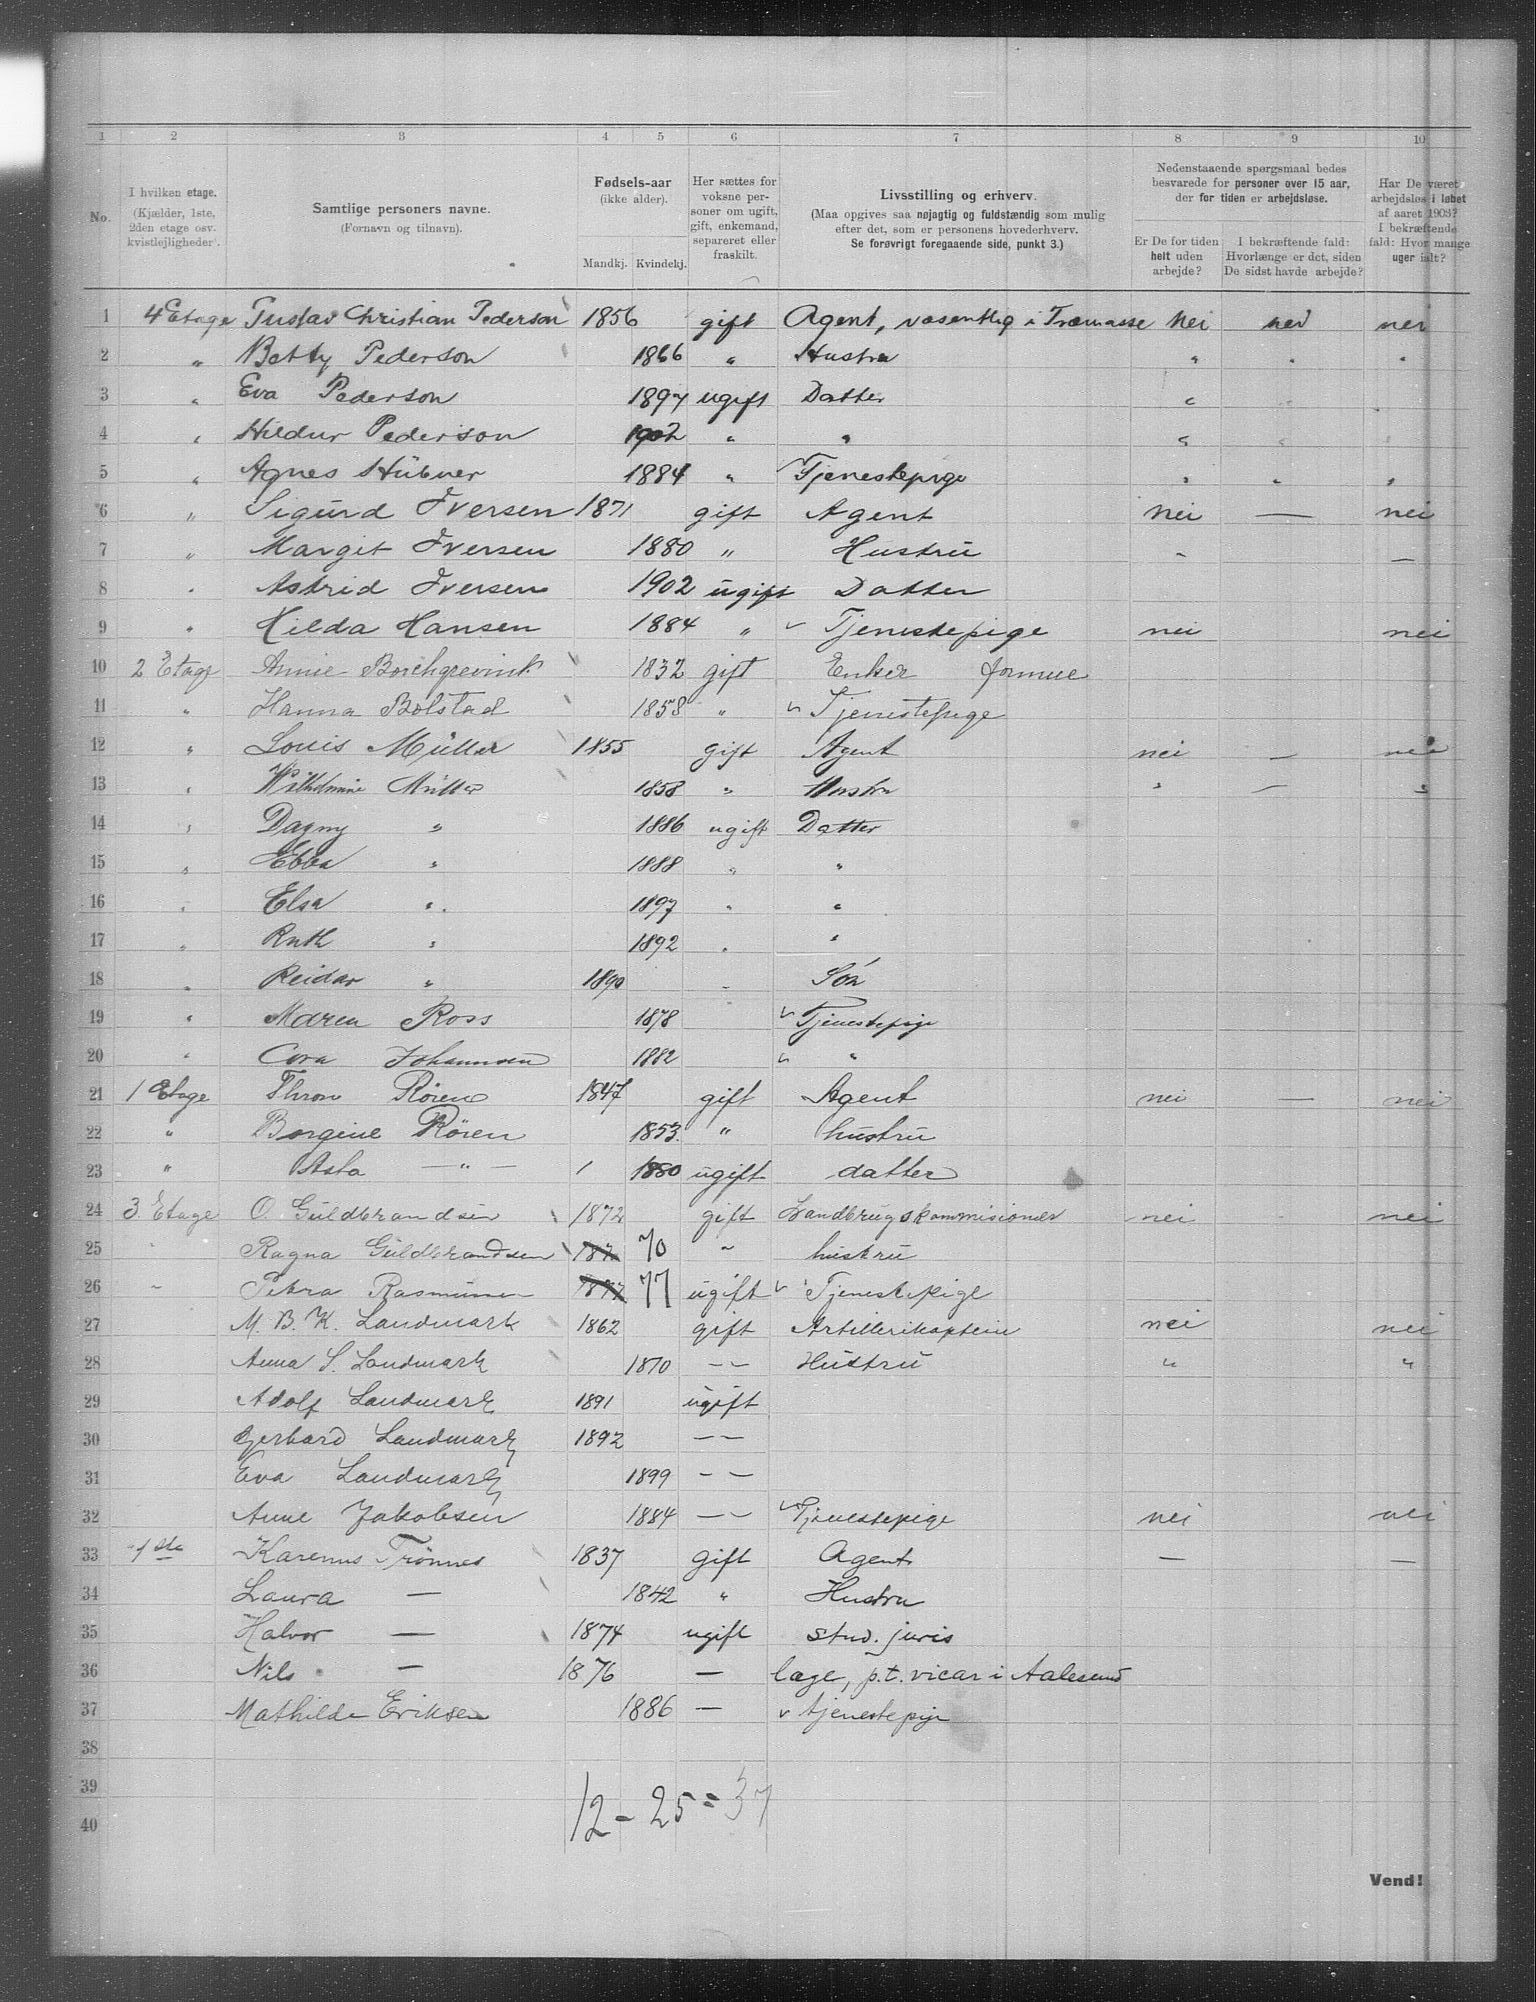 1 2 3 4 5 6 7 8 9 10
No.
I hvilken etage.
(Kjælder, 1ste,
2den etage osv.
kvistlejligheder).
Samtlige personers navne.
(Fornavn og tilnavn).
Fødsels-aar
(ikke alder).
Mandkj. Kvindekj.
Her sættes for
voksne per-
soner om ugift,
gift, enkemand,
separeret eller
fraskilt.
Livsstilling og erhverv.
(Maa opgives saa nøjagtig og fuldstændig som mulig
efter det, som er personens hovederhverv.
Se forøvrigt foregaaende side, punkt 3.)
Nedenstaaende spørgsmaal bedes
besvarede for personer over 15 aar,
der for tiden er arbejdsløse.
Er De for tiden
helt uden
arbejde?
I bekræftende fald:
Hvorlænge er det, siden
De sidst havde arbejde?
Har De været
arbejdsløs i løbet
af aaret 1903?
I bekræftende
fald: Hvor mange
uger ialt?
1 4 Etage Gustav Christian Pederson 1856 gift Agent, væsentlig i Træmasse Nei nei nei
2 " Betty Pederson 1866 " Hustru " " "
3 " Eva Pederson 1897 ugift Datter "
4 " Hildur Pederson 1902 " " "
5 " Agnes Hübner 1884 " Tjenestepige " " "
6 " Sigurd Iversen 1871 gift Agent nei — nei
7 " Margit Iversen 1880 " Hustru " —
8 " Astrid Iversen 1902 ugift Datter
9 " Hilda Hansen 1884 " Tjenestepige nei nei
10 2 Etage Annie Borchgrevink 1832 gift Enke formue
11 " Hanna Bolstad 1858 " Tjenestepige
12 " Louis Müller 1855 gift Agent nei — nei
13 " Wilhelmine Müller 1858 " Hustru " — "
14 " Dagny " 1886 ugift Datter
15 " Ebba " 1888 " "
16 " Elsa " 1897 " "
17 " Ruth " 1892 " "
18 " Reidar " 1890 " Søn
19 " Maren Ross 1878 Tjenestepige
20 " Cora Johannsen 1882 "
21 1 Etage Thron Røren 1847 gift Agent nei — nei
22 " Borgine Røren 1853. " hustru
23 " Asta — " — 1 1880 ugift datter
24 3 Etage O. Guldbrandsen 1872 gift Landbrugskommisioner nei nei
25 " Ragna Guldbrandsen 70 " hustru
26 " Petra Rasmussen 1877 77 ugift Tjenestepige
27 M. B. K. Landmark 1862 gift Artillerikaptein nei nei
28 Anna S. Landmark 1870 — — Hustru " "
29 Adolf Landmark 1891 ugift
30 Gerhard Landmark 1892 — —
31 Eva Landmark 1899 — —
32 Anne Jakobsen 1884 — — Tjenestepige nei nei
33 1ste Karenus Trønnes 1837 gift Agent — —
34 Laura — 1842 " Hustru
35 Halvor — 1874 ugift stud. juris
36 Nils — 1876 — læge, p.t. vicar i Aalesund
37 Mathilde Eriksen 1886 — tjenestepige
38
39
40
12 - 25 = 37
Vend!